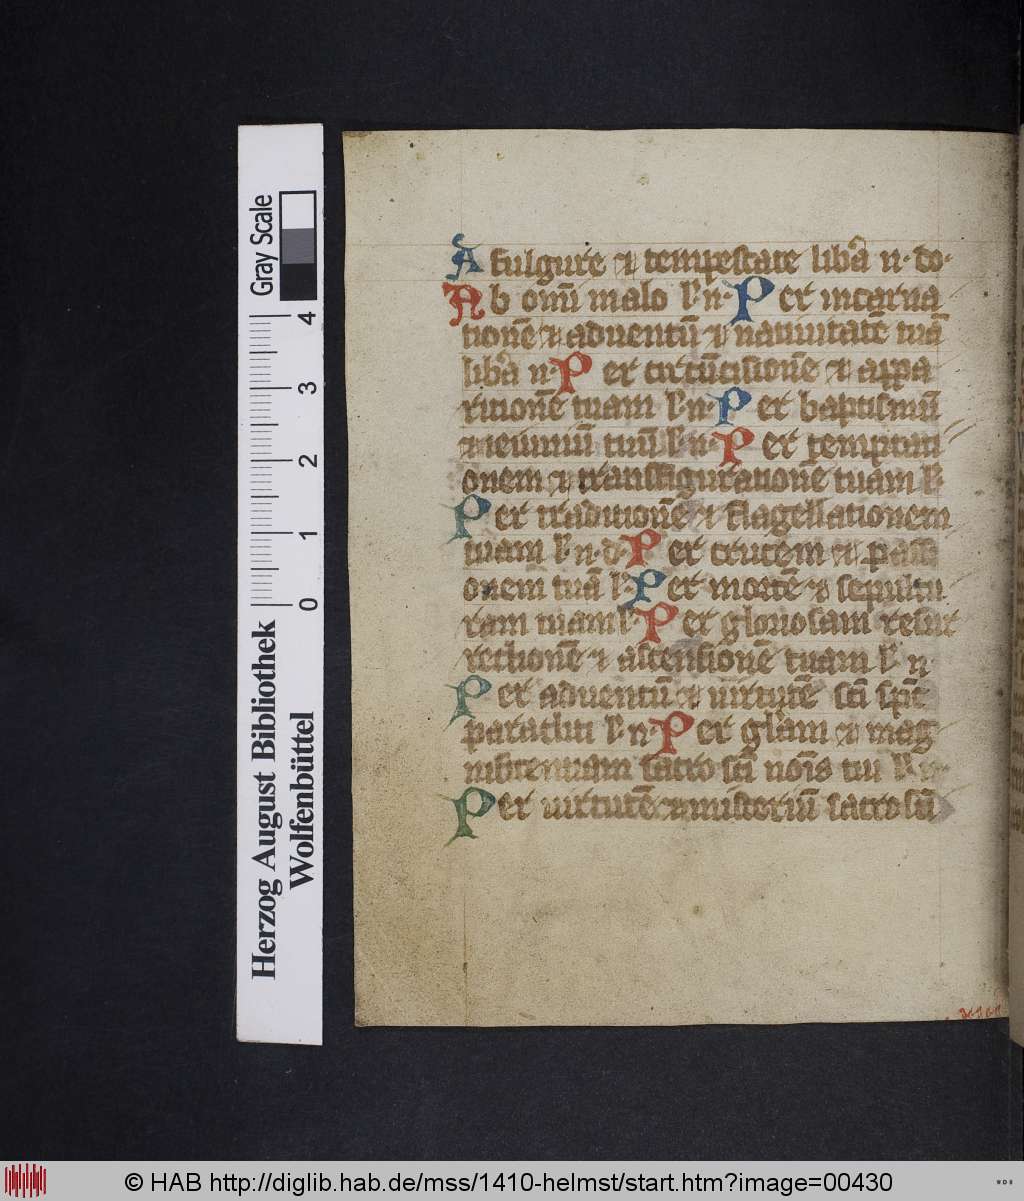 A fulgure et tempestate libā n· do·
Ab om̄i malo l· n· Per incarna
tionē et aduentū et natiuitatē tuā
libā n· Per circūcisionē et appa
ritionē tuam l· n· Per baptismū
et ieiuniū tuū l· n· Per temptati
onem et transfigurationē tuam l·
Per traditionē et flagellationem
tuam l· n· d· Per crucem et passi
onem tuā l· Per mortē et sepultu
ram tuam l· Per gloriosam resur
rectionē et ascensionē tuam l· n·
Per aduentū et uirtutē sc̄i sp̄c
paracliti l· n· Per gl̄am et mag
nificentiam sacro sc̄i nōis tui l· n·
Per uirtutē et misteriū sacro sc̄i
Gray Scale
4
3
2
1
0
Herzog August Bibliothek
Wolfenbüttel
© HAB http://diglib.hab.de/mss/1410-helmst/start.htm?image=00430